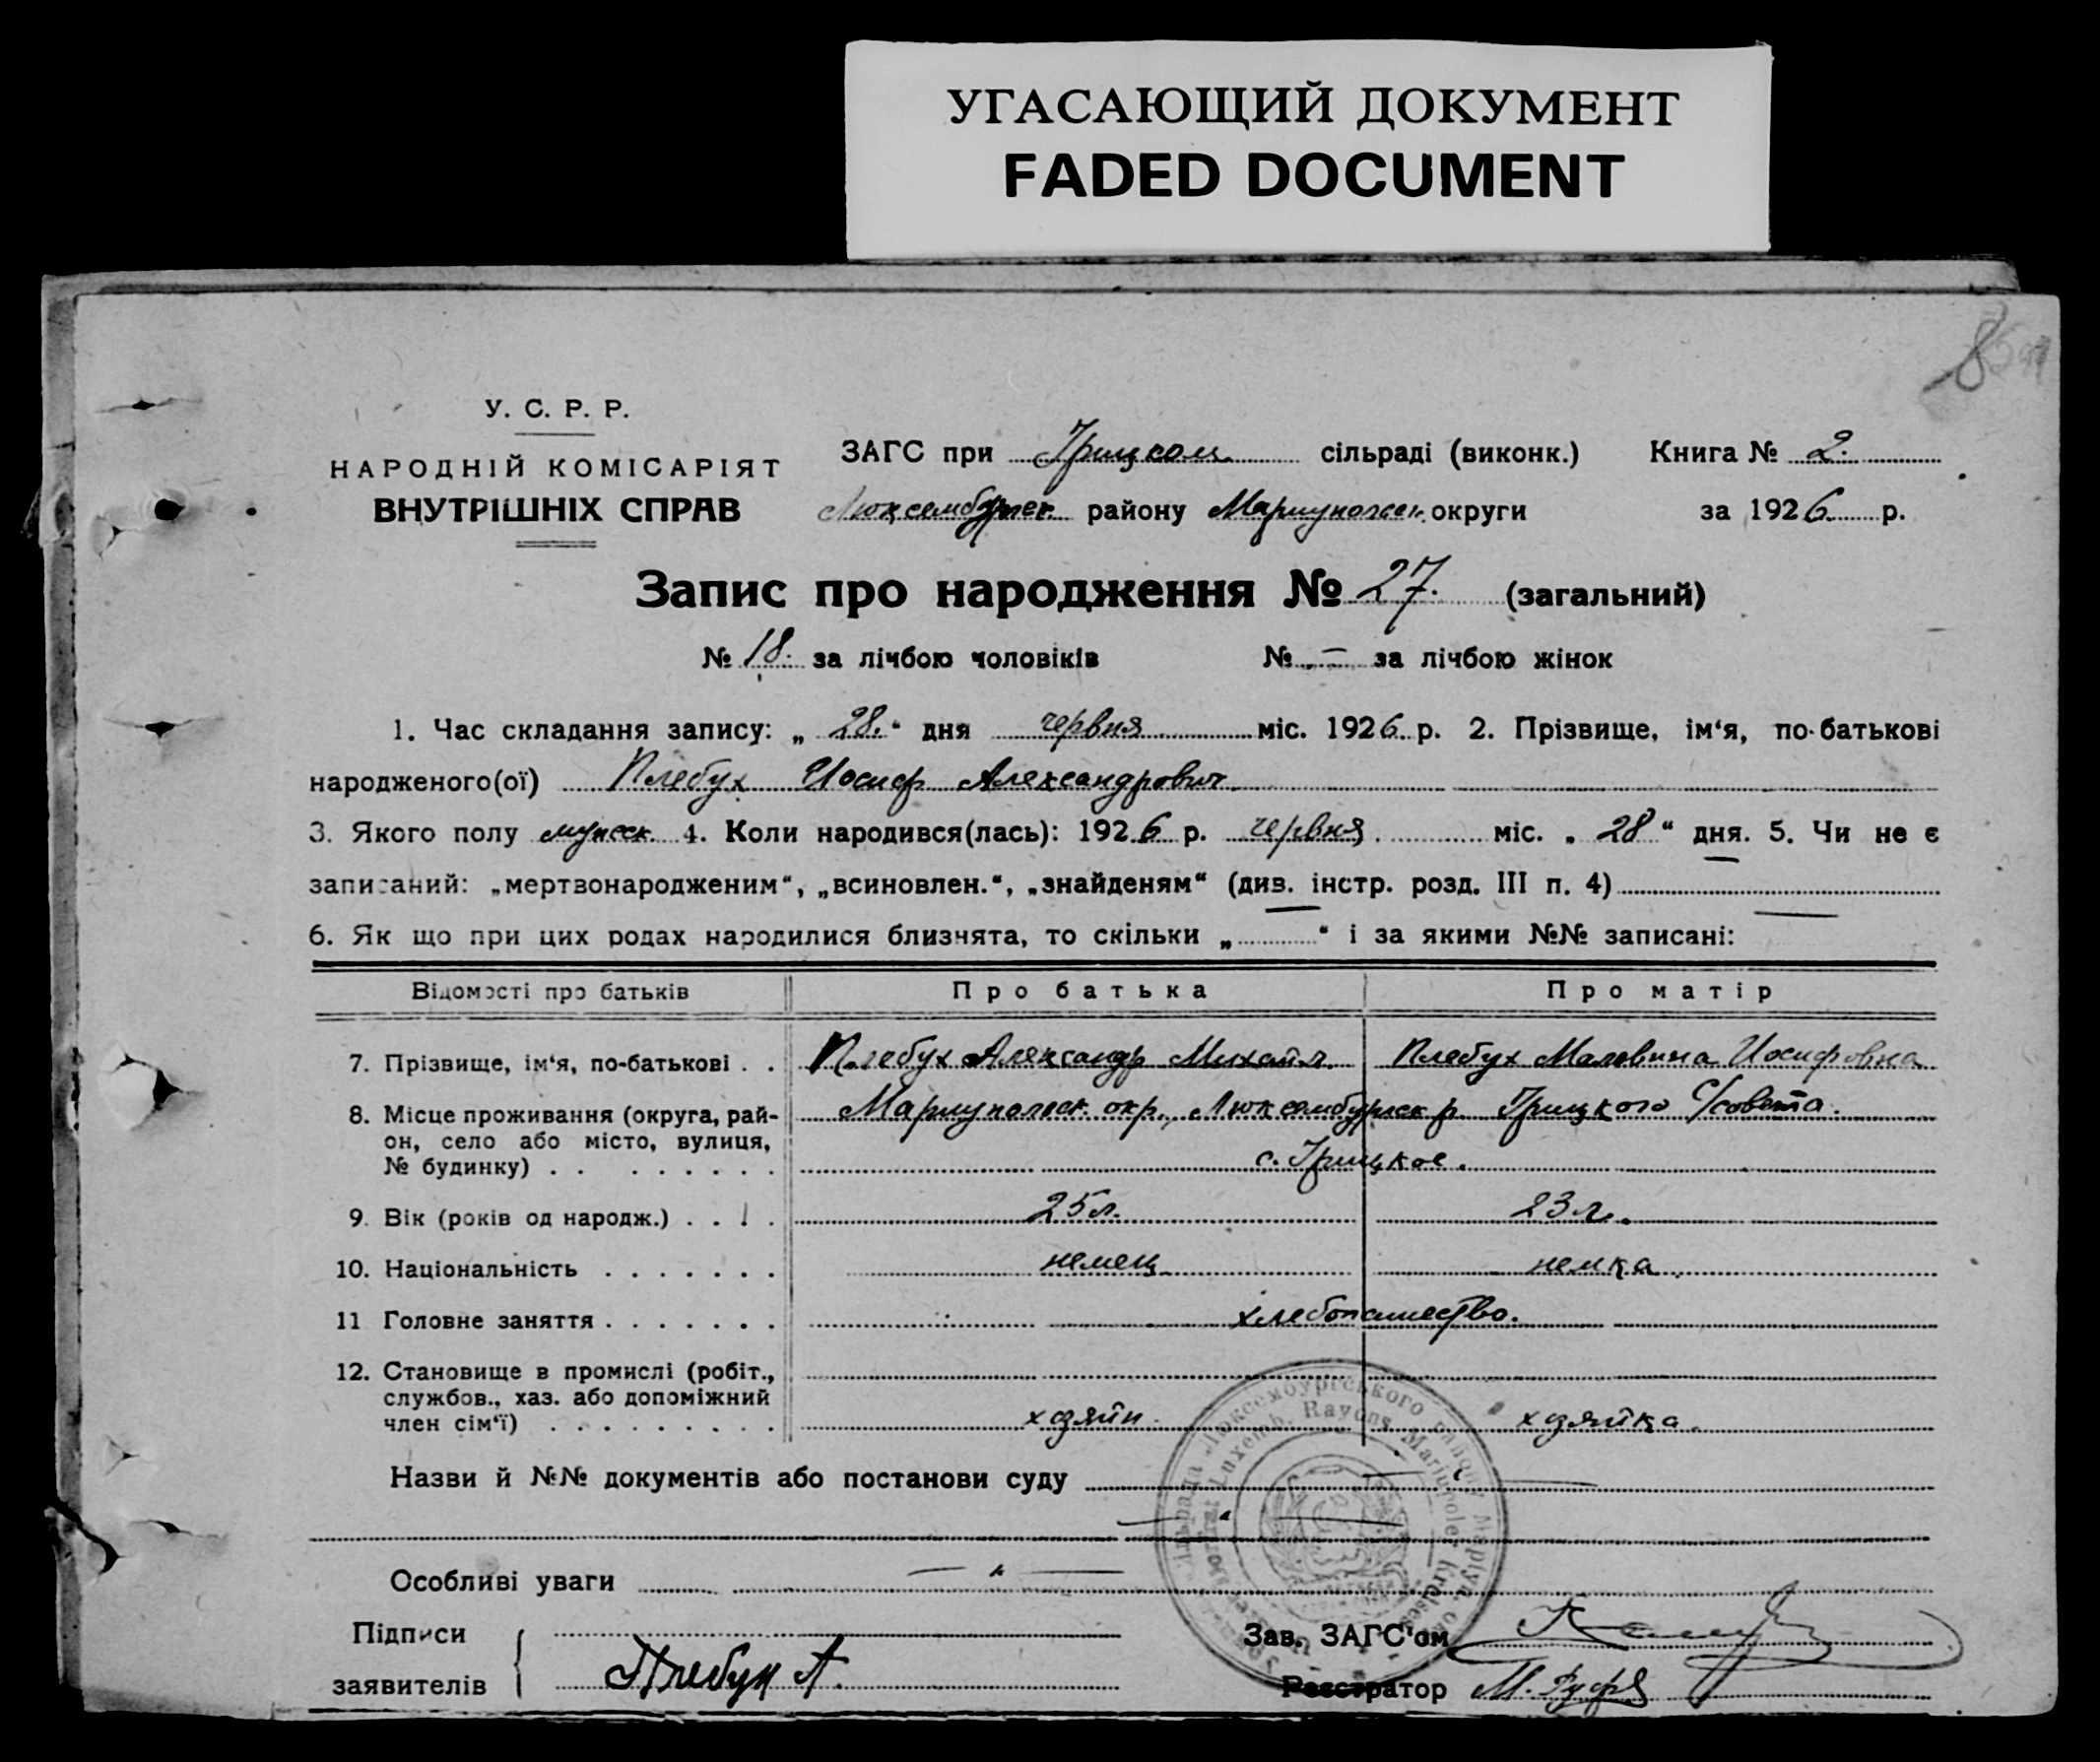 УГАСАЮЩИЙ ДОКУМЕНТ
FADED DOCUMENT
У. С. Р. Р.
НАРОДНІЙ КОМІСАРІЯТ
ВНУТРІШНІХ СПРАВ
ЗАГС при сільраді (виконк.) Книга № 2.
Люксембургск. району Мариупольск. округи за 1926 р.
Запис про народження № 27. (загальний)
№ 18. за лічбою чоловіків № — за лічбою жінок
1. Час складання запису: „ 28. “ дня червня міс. 1926 р. 2. Прізвище, ім‘я, по-батькові
народженого(ої) Плебух Иосиф Александрович
3. Якого полу мужск. 4. Коли народився(лась): 1926 р. червня міс. „ 28 “ дня. 5. Чи не є
записаний: „мертвонародженим“, „всиновлен.“, „знайденям“ (див. інстр. розд. III п. 4)
6. Як що при цих родах народилися близнята, то скільки „ “ і за якими №№ записані:
Відомості про батьків Про батька Про матір
7. Прізвище, ім‘я, по-батькові . . Плебух Александр Михайл. Плебух Малвина Иосифовна
8. Місце проживання (округа, рай- Мариупольск. окр., Люксембургск р. Грицкого С/совета.
он, село або місто, вулиця,
№ будинку) . . . . . . . . с. Грицкое.
9. Вік (років од народж.) . . . . 25 л. 23 л.
10. Національність . . . . . . . немец немка
11 Головне заняття . . . . . . . хлебопашество.
12. Становище в промислі (робіт.,
службов., хаз. або допоміжний
член сім‘ї) . . . . . . . . . хозяин. хозяйка.
Назви й №№ документів або постанови суду
Особливі уваги
Підписи Зав. ЗАГС'ом
заявителів Плебух А. Реєстратор М.